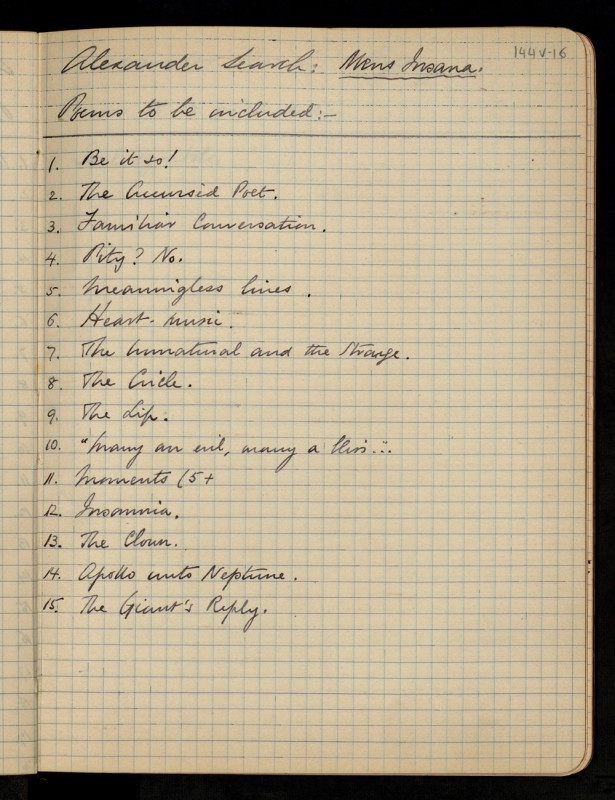 144V-16
Alexander Search: Mens Insana.
Poems to be included:-
1. Be it so!
2. The Accursed Poet.
3. Familiar Conversation.
4. Pity? No.
5. Meaningless lines.
6. Heart-music.
7. The Unnatural and the Strange.
8. The Circle.
9. The Lip.
10. "Many an evil, many a
11. Moments (5+
12. Insomnia.
13. The Clown.
14. Apollo unto Neptune.
15. The Giant's Reply.